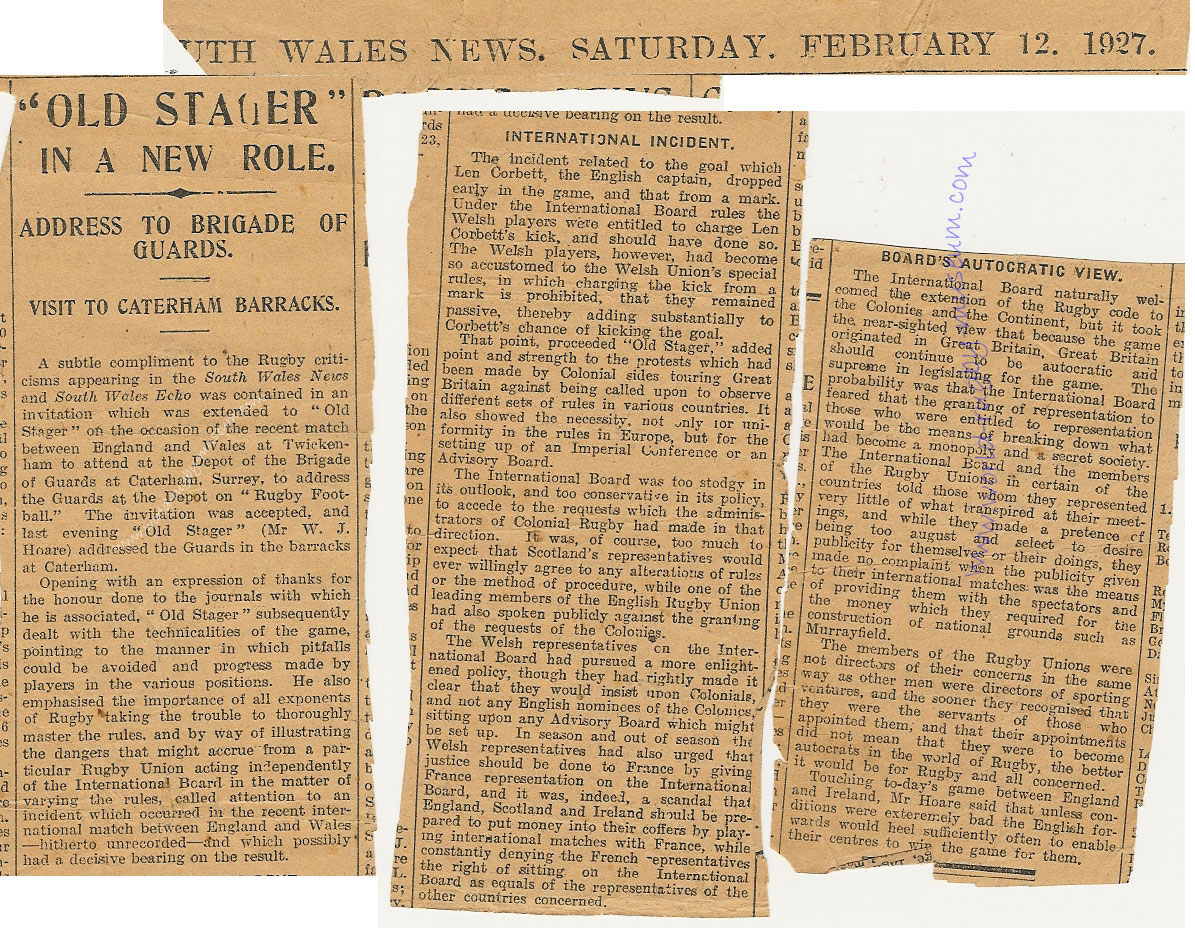 UTH WALES NEWS. SATURDAY. FEBRUARY 12. 1927.
"OLD STAGER"
IN A NEW ROLE.
ADDRESS TO BRIGADE OF
GUARDS.
VISIT TO CATERHAM BARRACKS.
A subtle compliment to the Rugby criti-
cisms appearing in the South Wales News
and South Wales Echo was contained in an
invitation which was extended to "Old
Stager" on the occasion of the recent match
between England and Wales at Twicken-
ham to attend at the Depot of the Brigade
of Guards at Caterham, Surrey, to address
the Guards at the Depot on "Rugby Foot-
ball." The invitation was accepted, and
last evening "Old Stager" (Mr W. J.
Hoare) addressed the Guards in the barracks
at Caterham.
Opening with an expression of thanks for
the honour done to the journals with which
he is associated, "Old Stager" subsequently
dealt with the technicalities of the game,
pointing to the manner in which pitfalls
could be avoided and progress made by
players in the various positions. He also
emphasised the importance of all exponents
of Rugby taking the trouble to thoroughly
master the rules, and by way of illustrating
the dangers that might accrue from a par-
ticular Rugby Union acting independently
of the International Board in the matter of
varying the rules, called attention to an
incident which occurred in the recent inter-
national match between England and Wales
—hitherto unrecorded—and which possibly
had a decisive bearing on the result.
had a decisive bearing on the result.
INTERNATIONAL INCIDENT.
The incident related to the goal which
Len Corbett, the English captain, dropped
early in the game, and that from a mark.
Under the International Board rules the
Welsh players were entitled to charge Len
Corbett's kick, and should have done so.
The Welsh players, however, had become
so accustomed to the Welsh Union's special
rules, in which charging the kick from a
mark is prohibited, that they remained
passive, thereby adding substantially to
Corbett's chance of kicking the goal.
That point, proceeded "Old Stager," added
point and strength to the protests which had
been made by Colonial sides touring Great
Britain against being called upon to observe
different sets of rules in various countries. It
also showed the necessity, not only for uni-
formity in the rules in Europe, but for the
setting up of an Imperial Conference or an
Advisory Board.
The International Board was too stodgy in
its outlook, and too conservative in its policy,
to accede to the requests which the adminis-
trators of Colonial Rugby had made in that
direction. It was, of course, too much to
expect that Scotland's representatives would
ever willingly agree to any alterations of rules
or the method of procedure, while one of the
leading members of the English Rugby Union
had also spoken publicly against the granting
of the requests of the Colonies.
The Welsh representatives on the Inter-
national Board had pursued a more enlight-
ened policy, though they had rightly made it
clear that they would insist upon Colonials,
and not any English nominees of the Colonies,
sitting upon any Advisory Board which might
be set up. In season and out of season the
Welsh representatives had also urged that
justice should be done to France by giving
France representation on the International
Board, and it was, indeed, a scandal that
England, Scotland and Ireland should be pre-
pared to put money into their coffers by play-
ing international matches with France, while
constantly denying the French representatives
the right of sitting on the International
Board as equals of the representatives of the
other countries concerned.
BOARD'S AUTOCRATIC VIEW.
The International Board naturally wel-
comed the extension of the Rugby code to
the Colonies and the Continent, but it took
the near-sighted view that because the game
originated in Great Britain, Great Britain
should continue to be autocratic and
supreme in legislating for the game. The
probability was that the International Board
feared that the granting of representation to
those who were entitled to representation
would be the means of breaking down what
had become a monopoly and a secret society.
The International Board and the members
of the Rugby Unions in certain of the
countries told those whom they represented
very little of what transpired at their meet-
ings, and while they made a pretence of
being too august and select to desire
publicity for themselves or their doings, they
made no complaint when the publicity given
to their international matches was the means
of providing them with the spectators and
the money which they required for the
construction of national grounds such as
Murrayfield.
The members of the Rugby Unions were
not directors of their concerns in the same
way as other men were directors of sporting
ventures, and the sooner they recognised that
they were the servants of those who
appointed them, and that their appointments
did not mean that they were to become
autocrats in the world of Rugby, the better
it would be for Rugby and all concerned.
Touching to-day's game between England
and Ireland, Mr Hoare said that unless con-
ditions were exteremely bad the English for-
wards would heel sufficiently often to enable
their centres to win the game for them.